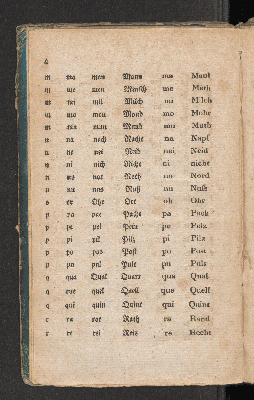 4
m ma man Mann ma Maul
m me men Mensch me Meth
m mi mil Milch mi Milch
m mo mon Mond mo Mohr
m mu mun Mund mu Muth
n na nach Nacht na Napf
n ne nei Neid nei Neid
n ni nich Nicht ni nicht
n no not Noth no Nord
n nu nus Nuß nu Nuß
o or Ohr Ort oh Ohr
p pa pac Pacht pa Pack
p pe pel Pelz pe Pelz
p pi pil Pilz pi Pilz
p po pos Post po Post
p pu pul Pult pu Puls
q qua Qual Quarz qua Qual
q que quel Quell que Quell
q qui quin Quint qui Quint
r ra rat Rath ra Rand
r re rei Reis re Recht